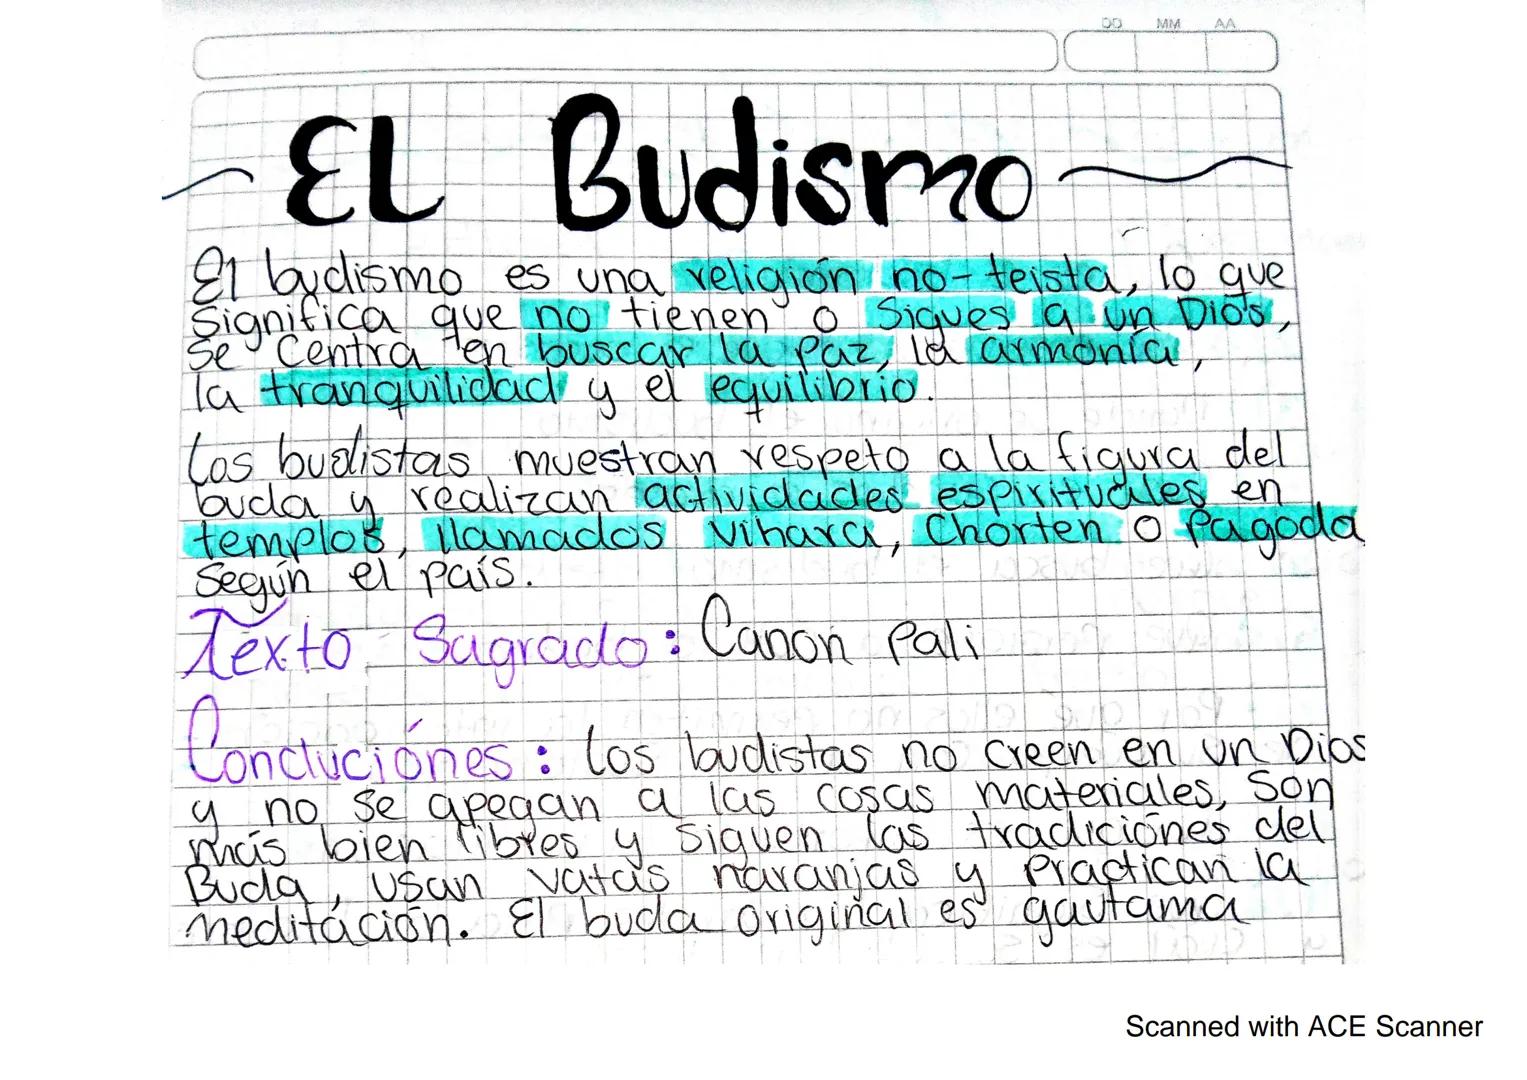 DD MM AA
EL Budismo
El budismo es una religión no-teista, lo que
significa que no tienen o Sigues a un Dios,
se Centra en buscar la paz, la armonía,
la tranquilidad y el equilibrio.
Los budistas muestran respeto a la figura del
buda y realizan actividades espirituales en
templos, llamados vihara, Chorten o Pagoda
según el país.
Texto Sagrado: Canon Pali
Concluciónes: los budistas no creen en un Dios
y no se apegan a las cosas materiales, Son
más bien libres y siguen las tradiciónes del
Buda, usan vatas naranjas y Practican la
meditación. El buda original es gautama
Scanned with ACE Scanner